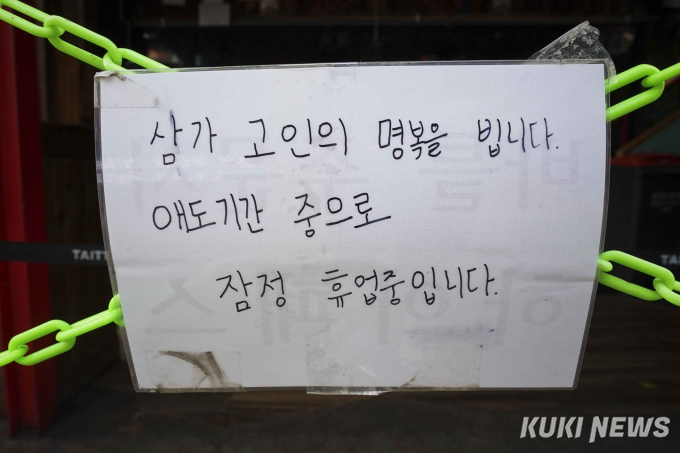 삼가 고인의 명복을 빕니다.
애도기간 중으로
잠정 휴업중입니다.
TAIT
KUKI NEWS